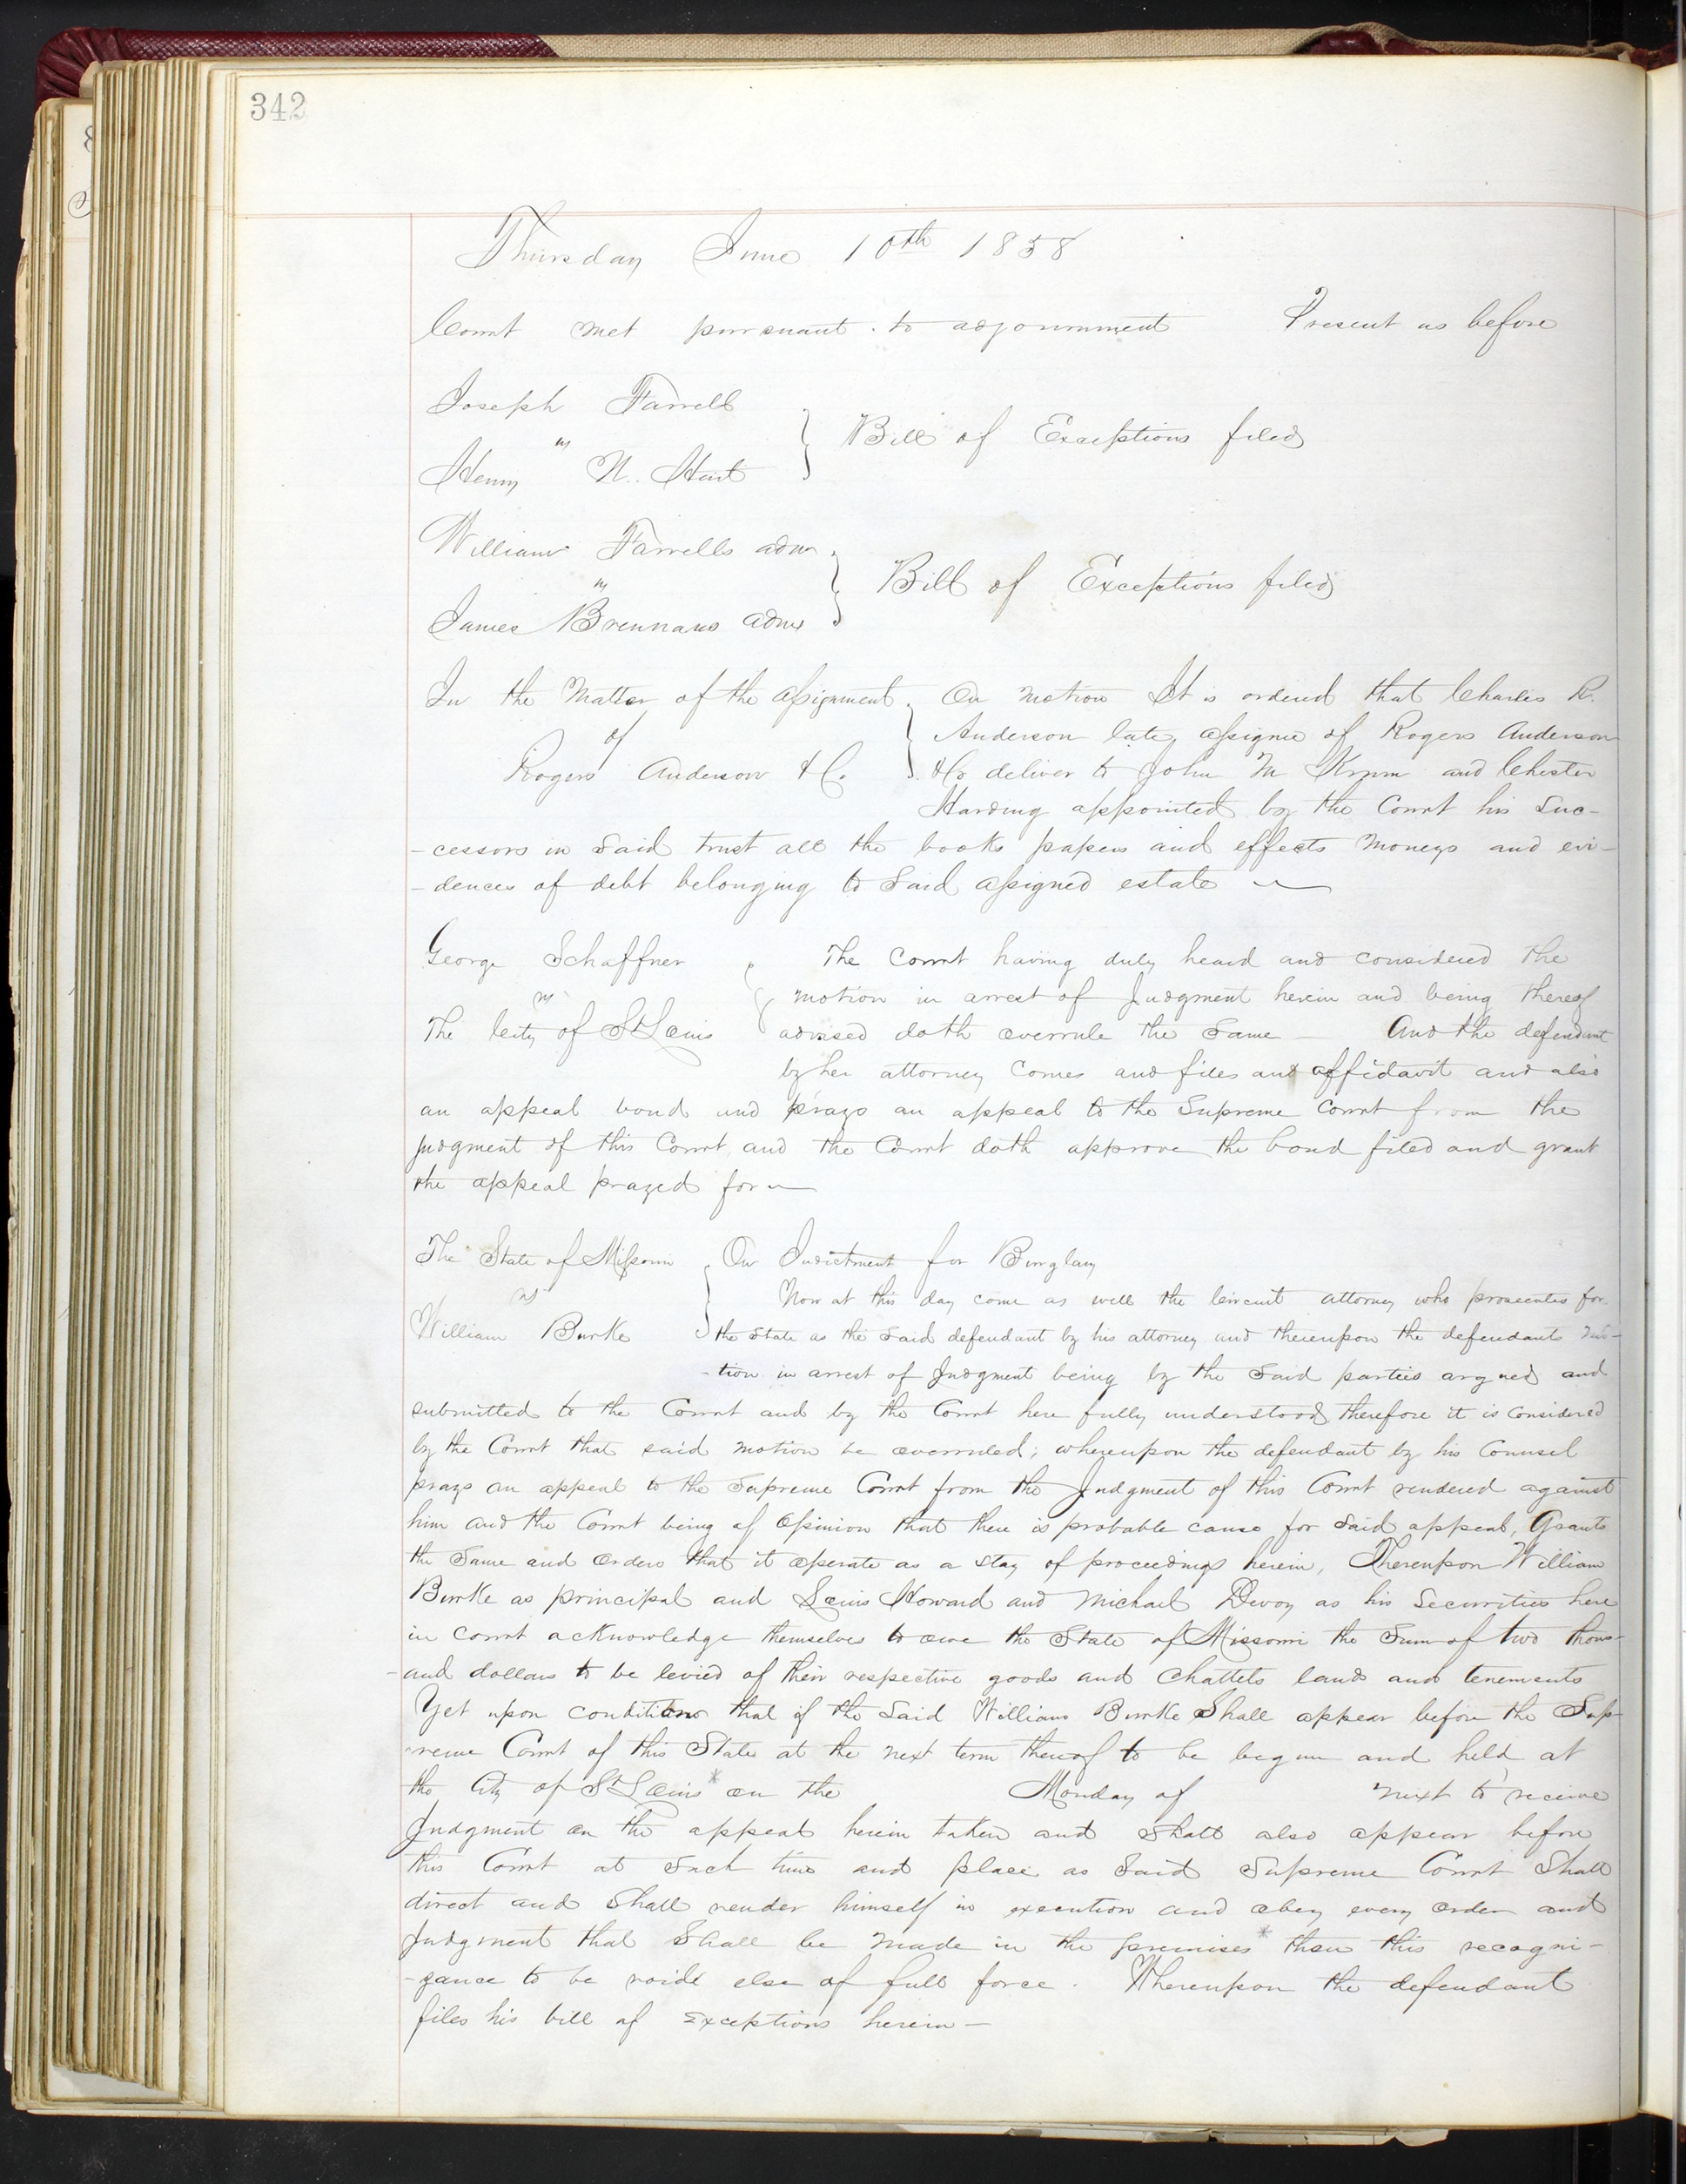 342
Thursday June 10th 1858
Court met pursuant to adjournment Present as before
Joseph Farrell
vs
Henry N. Hart
} Bill of Exceptions filed
William Farrells adm
vs
James Brennans admx
} Bill of Exceptions filed
In the Matter of the assignment
of
Rogers Anderson & Co
} On motion It is ordered that Charles R.
Anderson late assignee of Rogers Anderson
& Co deliver to John M Krum and Chester
Harding appointed by the Court his Suc-
-cessors in Said trust all the books papers and effects moneys and evi-
-dences of debt belonging to Said assigned estate
George Schaffner
vs
The City of St Louis
} The Court having duly heard and considered the
motion in arrest of Judgment herein and being thereof
advised doth overrule the Same – And the defendant
by her attorney Comes and files and affidavit and also
an appeal bond and prays an appeal to the Supreme Court from the
judgment of this Court, and the Court doth approve the bond filed and grant
the appeal prayed for
The State of Missouri
vs
William Burke
} On Indictment for Burglary
Now at this day come as well the Circuit attorney who prosecutes for
the State as the Said defendant by his attorney and thereupon the defendants mo-
-tion in arrest of Judgment being by the Said parties argued and
submitted to the Court and by the Court here fully understood therefore it is Considered
by the Court that said motion be overruled; whereupon the defendant by his Counsel
prays an appeal to the Supreme Court from the Judgment of this Court rendered against
him and the Court being of Opinion that there is probable cause for Said appeal, Grants
the Same and Orders that it operate as a stay of proceedings herein, Thereupon William
Burke as principal and Louis Howard and Michael Devoy as his Securities here
in Court acknowledge themselves to owe the State of Missouri the Sum of two thous-
-and dollars to be levied of their respective goods and Chattels lands and tenements
Yet upon conditions that if the Said William Burke Shall appear before the Sup-
-reme Court of this State at the next term thereof to be begun and held at
the City of St Louis * on the Monday of next to receive
Judgment on the appeal herein taken and Shall also appear before
this Court at Such time and place as Said Supreme Court Shall
direct and Shall render himself in execution and obey every Order and
Judgment that Shall be made in the premises * then this recogni-
-zance to be void else of full force. Thereupon the defendant
files his bill of Exceptions herein –